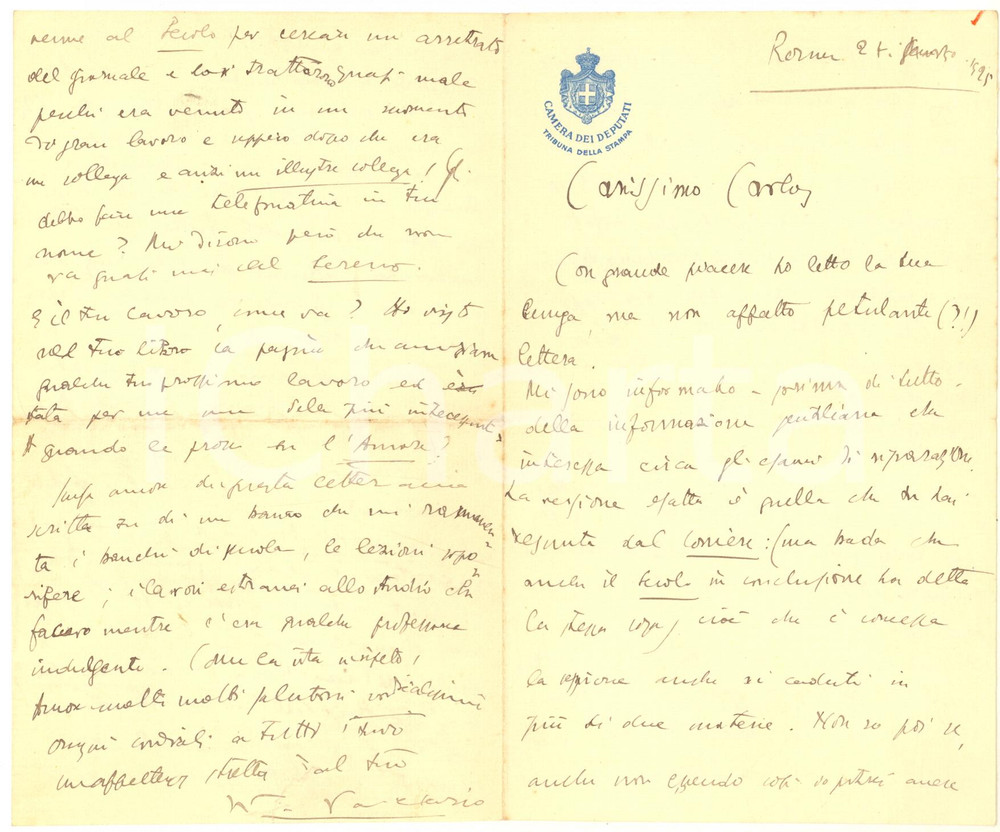 Roma 2
1925
CAMERA DEI DEPUTATI
TRIBUNA DELLA STAMPA
Carissimo Carlo,
Con grande piacere ho letto la tua
lunga, ma non affatto petulante (?!)
lettera.
Mi sono informato - prima di tutto -
della informazione che
interessa circa gli esami di riparazione.
La versione esatta è quella che tu hai
dal Corriere: (ma bada che
anche il Secolo in conclusione ha detto
la stessa cosa) cioè che è concessa
la anche ai caduti in
più di due materie. Non so poi se,
anche non essendo così io potrei avere
venne al Secolo per cercare un arretrato
del giornale e lo quasi male
perchè era venuto in un momento
di gran lavoro e seppero dopo che era
un collega e anzi un illustre collega!
debbo fare una in tuo
nome? Mi dicono però che non
va quasi mai al Sereno.
E il tuo lavoro, come va? Ho visto
nel tuo libro la pagina che annunziava
qualche tuo prossimo lavoro ed è
stata per me una delle più interessanti
A quando le prose su l'Amore?
di questa lettera
scritta su di un banco che mi rammen-
ta i banchi di scuola, le lezioni sopo-
rifere; i lavori estranei allo studio che
facevo mentre c'era qualche professore
indulgente. Come la vita
molti molti saluti
ossequi cordiali a tutti i tuoi
un affettuosa stretta dal tuo